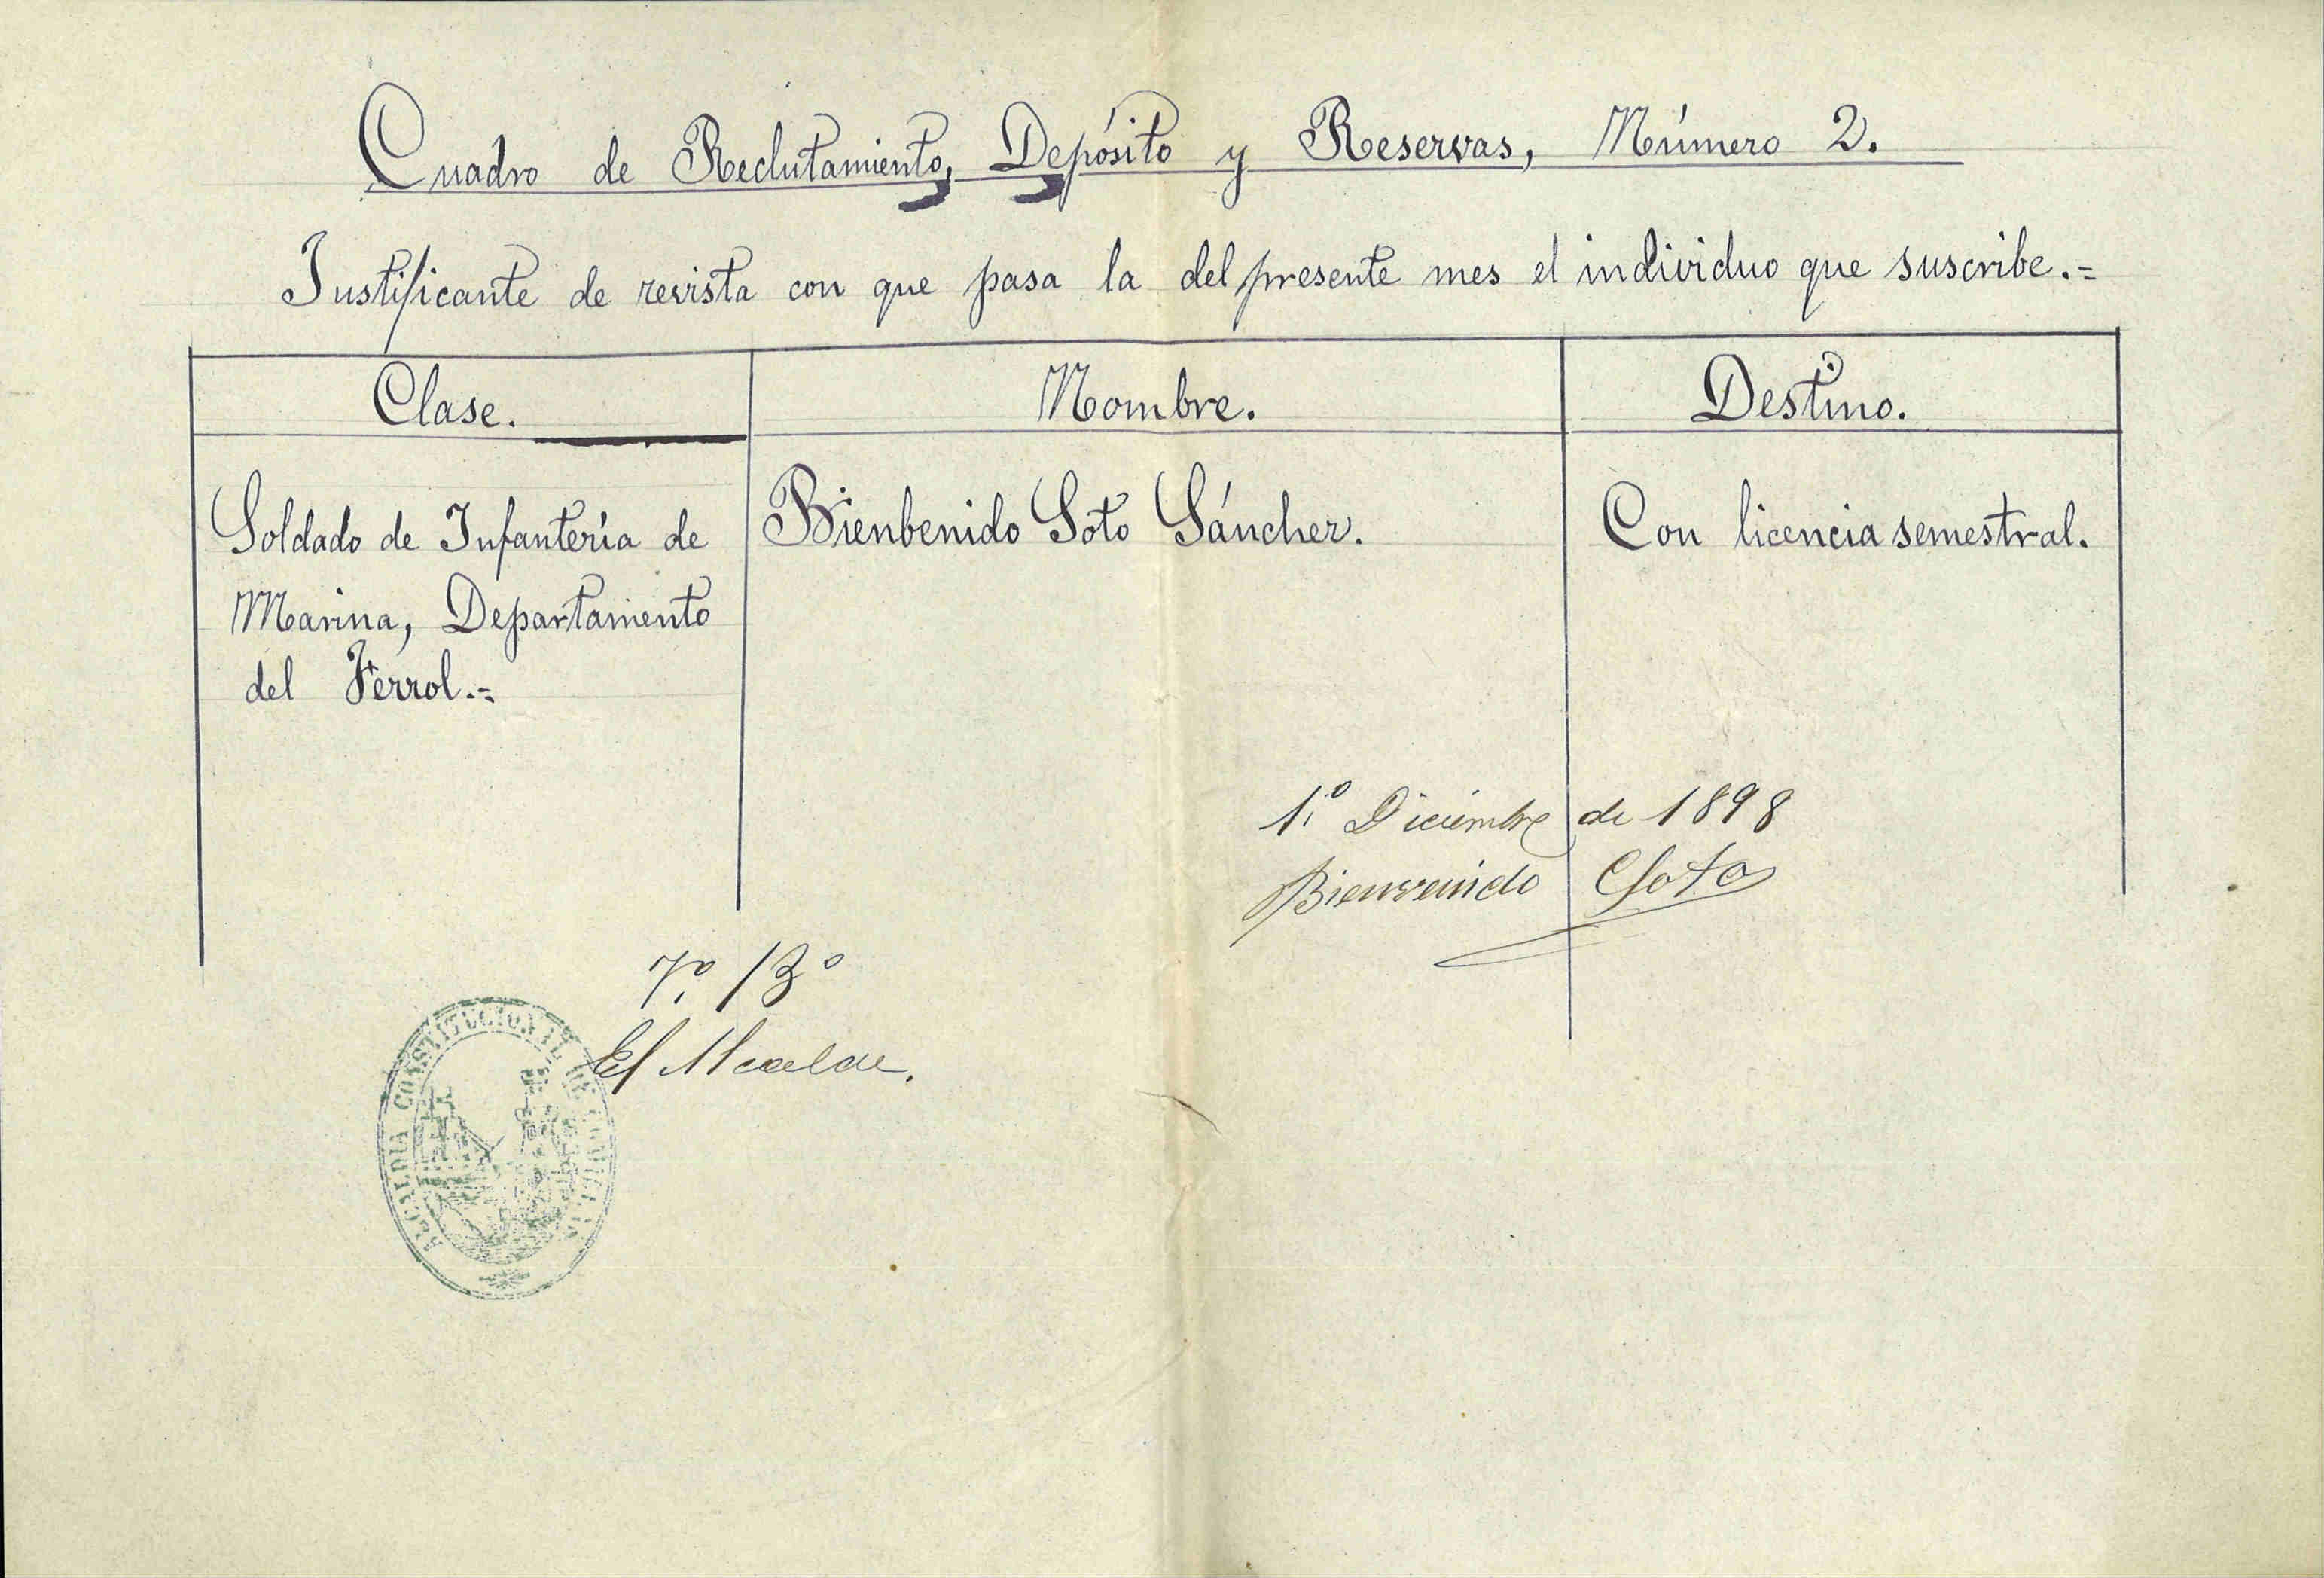 Cuadro de Reclutamiento, Depósito y Reservas, Número 2.
Justificante de revista con que pasa la del presente mes el individuo que suscribe.=
Clase.
Nombre.
Destino.
Soldado de Infantería de
Marina, Departamento
del Ferrol.=
Bienbenido Soto Sánchez.
Con licencia semestral.
1º Diciembre de 1898
Bienvenido Soto
Vº Bº
El Alcalde.
ALCALDIA CONSTITUCIONAL DE